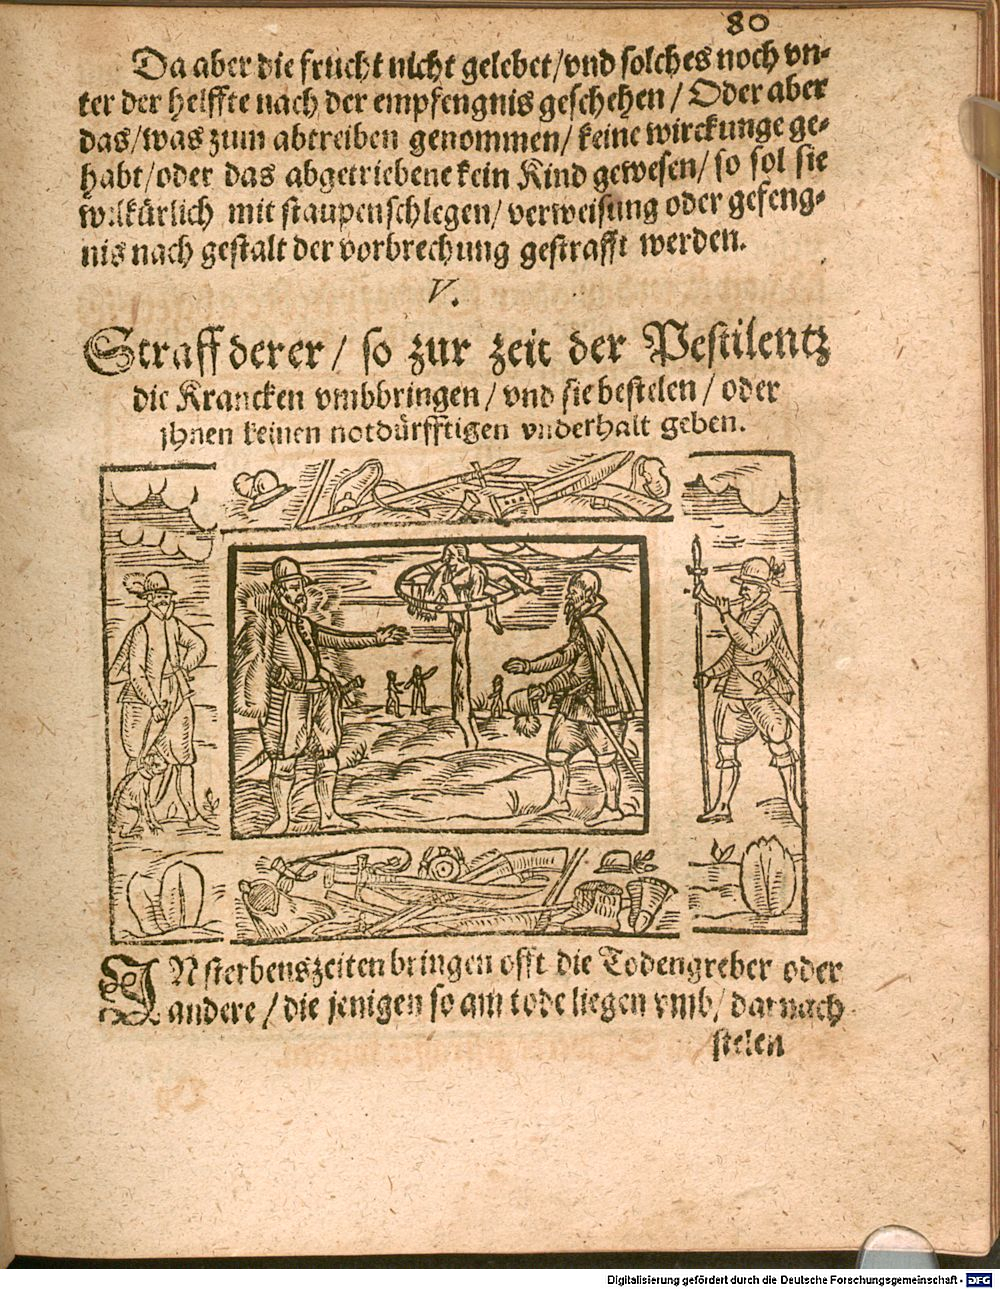 80
Da aber die frucht nicht gelebet/vnd solches noch vn-
ter der helffte nach der empfengnis geschehen / Oder aber
das/was zum abtreiben genommen/ keine wirckunge ge-
habt/oder das abgetriebene kein Kind gewesen/ so sol sie
wilkürlich mit staupenschlegen/ verweisung oder gefeng-
nis nach gestalt der vorbrechung gestrafft werden.
V.
Straff derer / so zur zeit der Pestilentz
die Krancken vmbbringen / vnd sie bestelen / oder
ihnen keinen notdürfftigen vnderhalt geben.
IN sterbenszeiten bringen offt die Todengreber oder
andere / die jenigen so am tode liegen vmb/ darnach
stelen
Digitalisierung gefördert durch die Deutsche Forschungsgemeinschaft - DFG